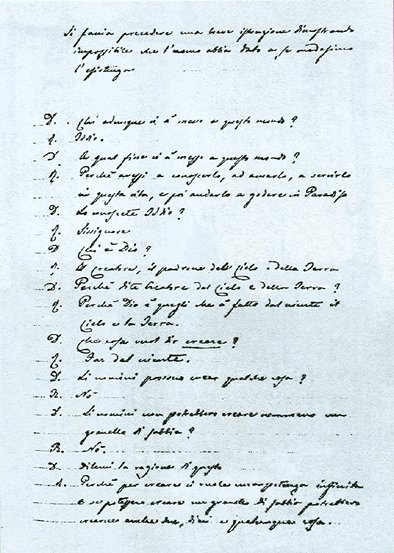 Si faccia precedere una breve istruzione dimostrando
impossibile che l'uomo abbia dato a se medesimo
l'esistenza
D. Chi adunque ci à messo a questo mondo?
R. Iddio.
D. A qual fine ci à messi a questo mondo?
R. Perché avessi a conoscerlo, ad amarlo, a servirlo
in questa vita, e poi andarlo a godere in Paradiso
D. Lo conoscete Iddio?
R. Sissignore
D. Chi è Dio?
R. Il Creatore, il padrone del Cielo e della Terra
D. Perché dite Creatore del Cielo e della Terra?
R. Perché Dio è quegli che à fatto dal niente il
Cielo e la Terra.
D. Che cosa vuol dir creare?
R. Far dal niente.
D. Gli uomini possono crear qualche cosa?
R. Nò
D. Gli uomini non potrebbero creare nemmeno un
granello di sabbia?
R. Nò.
D. Ditemi la ragione di questo
R. Perché per creare ci vuole una potenza infinita
e se potesse creare un granello di sabbia potrebbero
crearne anche due, dieci e qualunque cosa.